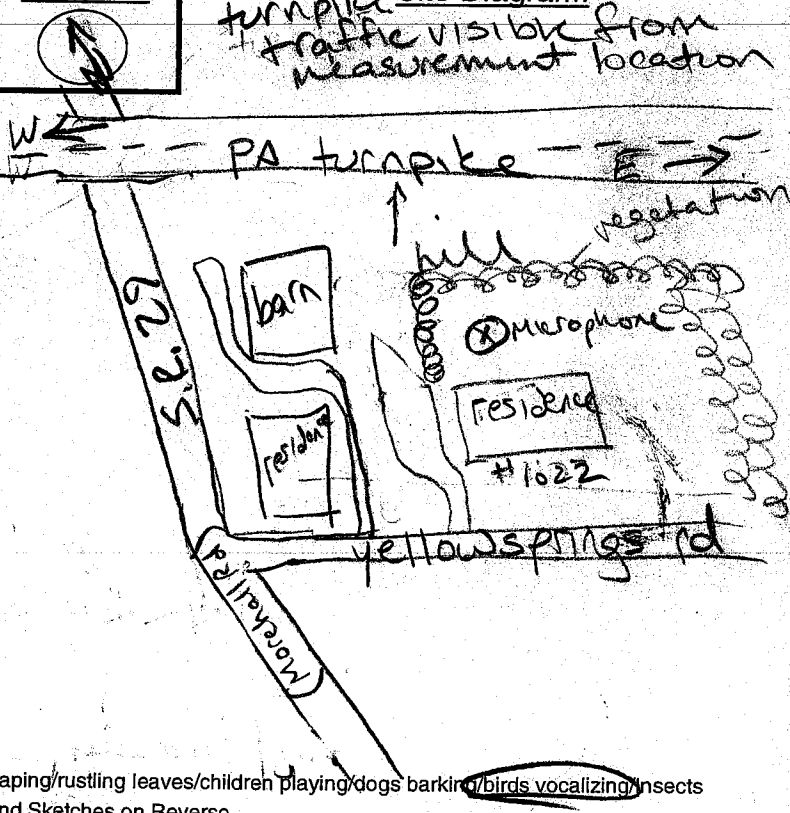 turnpike Site Diagram:
traffic visible from
measurement location
W
PA turnpike
E
vegetation
hill
barn
Microphone
S.R. 29
residence
residence
#1022
yellowsprings rd
(Morehall Rd)
aping/rustling leaves/children playing/dogs barking/birds vocalizing/insects
nd Sketches on Reverse